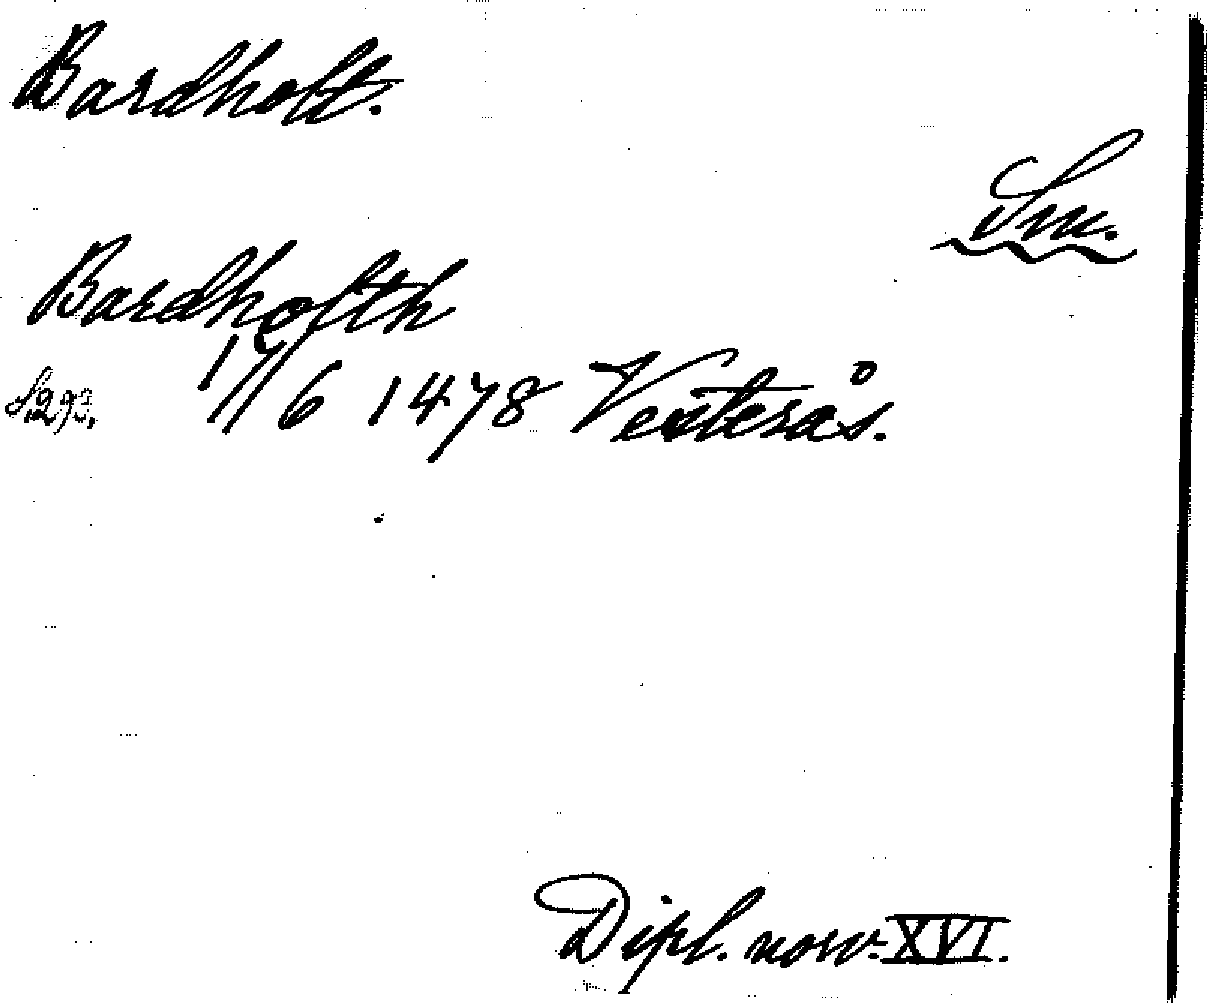 Bardholt.
Sm.
Bardholth
S. 293. 17/6 1478 Vesterås.
Dipl. norv. XVI.